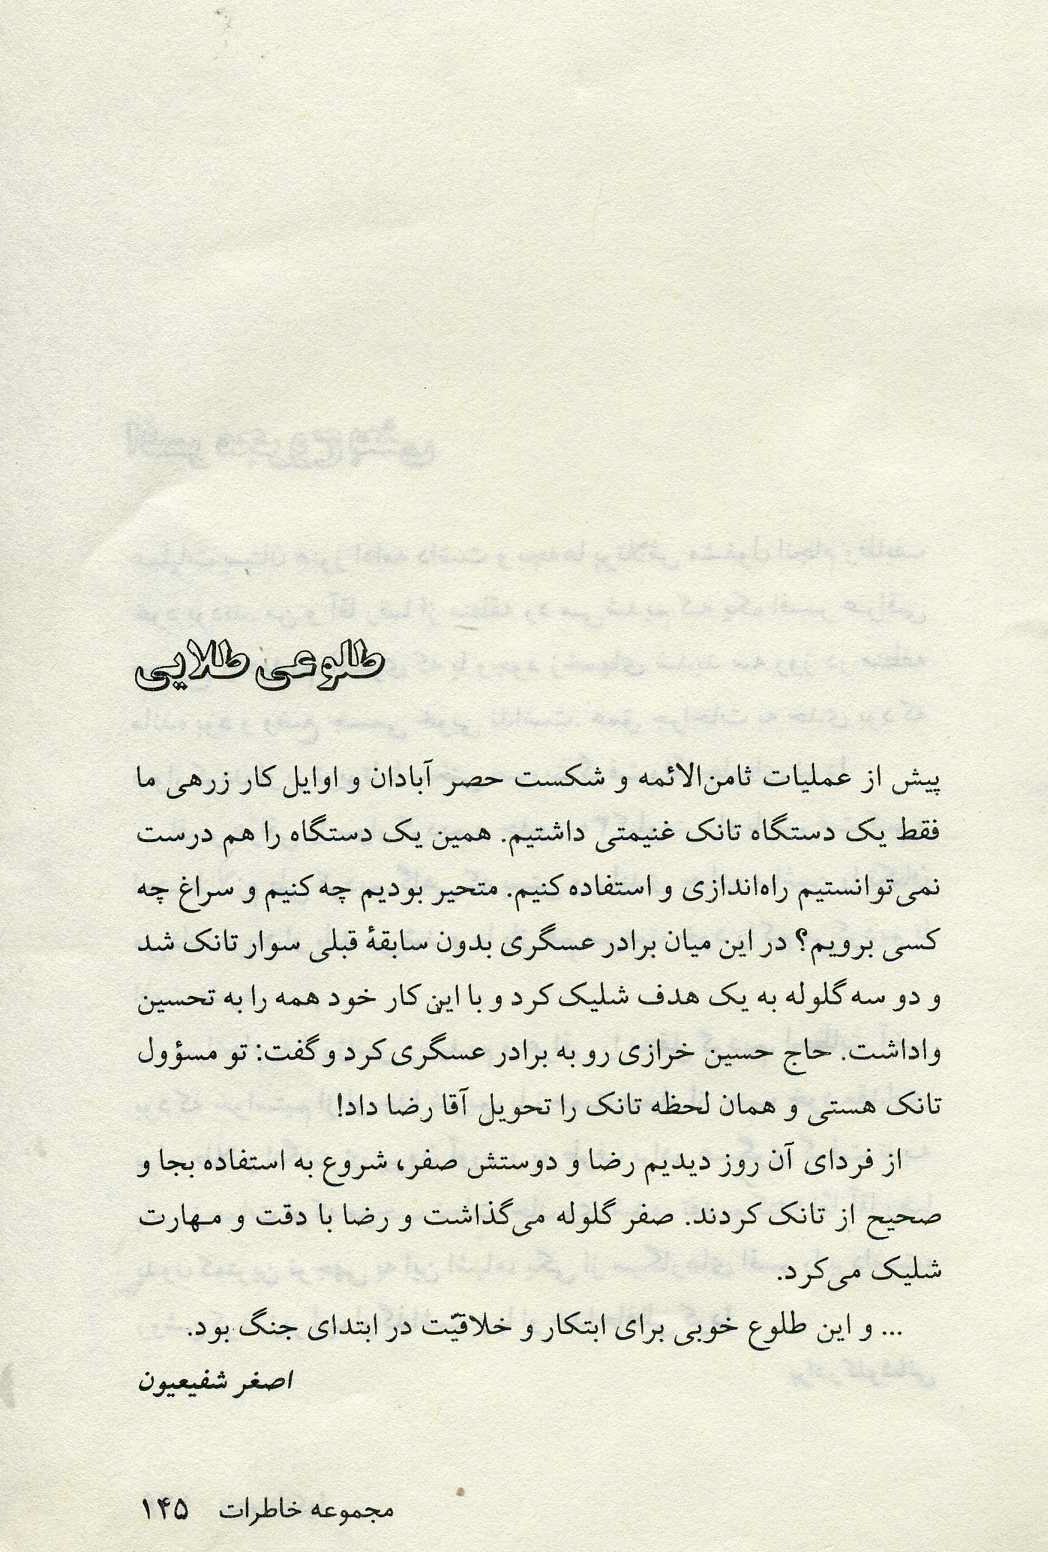 طلوعی طلایی
پیش از عملیات ثامن‌الائمه و شکست حصر آبادان و اوایل کار زرهی ما
فقط یک دستگاه تانک غنیمتی داشتیم. همین یک دستگاه را هم درست
نمی‌توانستیم راه‌اندازی و استفاده کنیم. متحیر بودیم چه کنیم و سراغ چه
کسی برویم؟ در این میان برادر عسگری بدون سابقهٔ قبلی سوار تانک شد
و دو سه گلوله به یک هدف شلیک کرد و با این کار خود همه را به تحسین
واداشت. حاج حسین خرازی رو به برادر عسگری کرد و گفت: تو مسؤول
تانک هستی و همان لحظه تانک را تحویل آقا رضا داد!
از فردای آن روز دیدیم رضا و دوستش صفر، شروع به استفاده بجا و
صحیح از تانک کردند. صفر گلوله می‌گذاشت و رضا با دقت و مهارت
شلیک می‌کرد.
... و این طلوع خوبی برای ابتکار و خلاقیّت در ابتدای جنگ بود.
اصغر شفیعیون
مجموعه خاطرات ۱۴۵